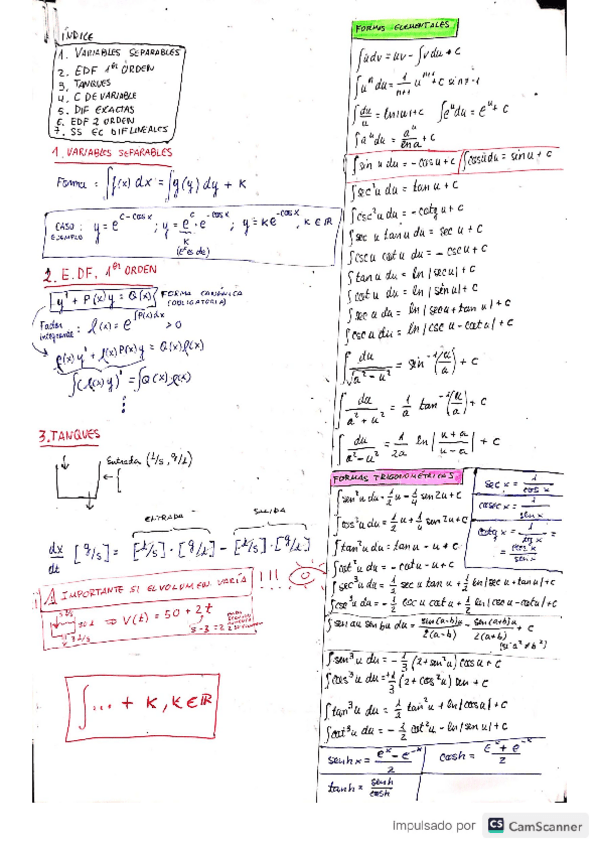 ÍNDICE
1. VARIABLES SEPARABLES
2. EDF 1er ÓRDEN
3. TANQUES
4. C DE VARIABLE
5. DIF EXACTAS
6. EDF 2 ORDEN
7. SS EC DIF LINEALES
1. VARIABLES SEPARABLES
Forma: ∫f(x) dx = ∫g(y) dy + K
CASO: y = e^(c-cosx) ; y = e^c · e^(-cosx) ; y = K e^(-cosx), K ∈ ℝ
EJEMPLO
K
2. E.DF. 1er ORDEN
y' + P(x)y = Q(x) FORMA CANÓNICA
(OBLIGATORIA)
Factor integrante: l(x) = e^(∫P(x)dx) > 0
l(x)y' + l(x)P(x)y = Q(x)l(x)
∫(l(x)y)' = ∫Q(x)·l(x)
⋮
3. TANQUES
Entrada (l/s, g/l)
ENTRADA SALIDA
dx/dt [g/s] = [l/s]·[g/l] - [l/s]·[g/l]
⚠ IMPORTANTE SI EL VOLUMEN VARÍA !!!
⇒ V(t) = 50 + 2t
5-3=2
∫... + K, K∈ℝ
FORMAS ELEMENTALES
∫udv = uv - ∫vdu + C
∫uⁿdu = 1/(n+1) uⁿ⁺¹ + C si n≠-1
∫du/u = ln|u| + C ∫eᵘdu = eᵘ + C
∫aᵘdu = aᵘ/ln a + C
∫sin u du = -cos u + C ∫cos u du = sin u + C
∫sec²u du = tan u + C
∫csc²u du = -cotg u + C
∫sec u tan u du = sec u + C
∫csc u cot u du = -csc u + C
∫tan u du = ln|sec u| + C
∫cot u du = ln|sin u| + C
∫sec u du = ln|sec u + tan u| + C
∫csc u du = ln|csc u - cot u| + C
∫du/√(a²-u²) = sin⁻¹(u/a) + C
∫du/(a²+u²) = 1/a tan⁻¹(u/a) + C
∫du/(a²-u²) = 1/2a ln|(u+a)/(u-a)| + C
FORMAS TRIGONOMÉTRICAS
sec x = 1/cos x
cosec x = 1/sin x
cotg x = 1/tg x = = cos x/sin x
∫sen²u du = 1/2 u - 1/4 sen 2u + C
∫cos²u du = 1/2 u + 1/4 sen 2u + C
∫tan²u du = tan u - u + C
∫cot²u du = -cot u - u + C
∫sec³u du = 1/2 sec u tan u + 1/2 ln|sec u + tan u| + C
∫csc³u du = -1/2 csc u cot u + 1/2 ln|csc u - cot u| + C
∫sen au sen bu du = sin(a-b)u/2(a-b) - sen(a+b)u/2(a+b) + C
(si a²≠b²)
∫sen³u du = -1/3 (2+sin²u) cos u + C
∫cos³u du = +1/3 (2+cos²u) sen + C
∫tan³u du = 1/2 tan²u + ln|cos u| + C
∫cot³u du = -1/2 cot²u - ln|sin u| + C
senh x = (eˣ - e⁻ˣ)/2 cosh = (eˣ + e⁻ˣ)/2
tanh = senh/cosh
Impulsado por CS CamScanner